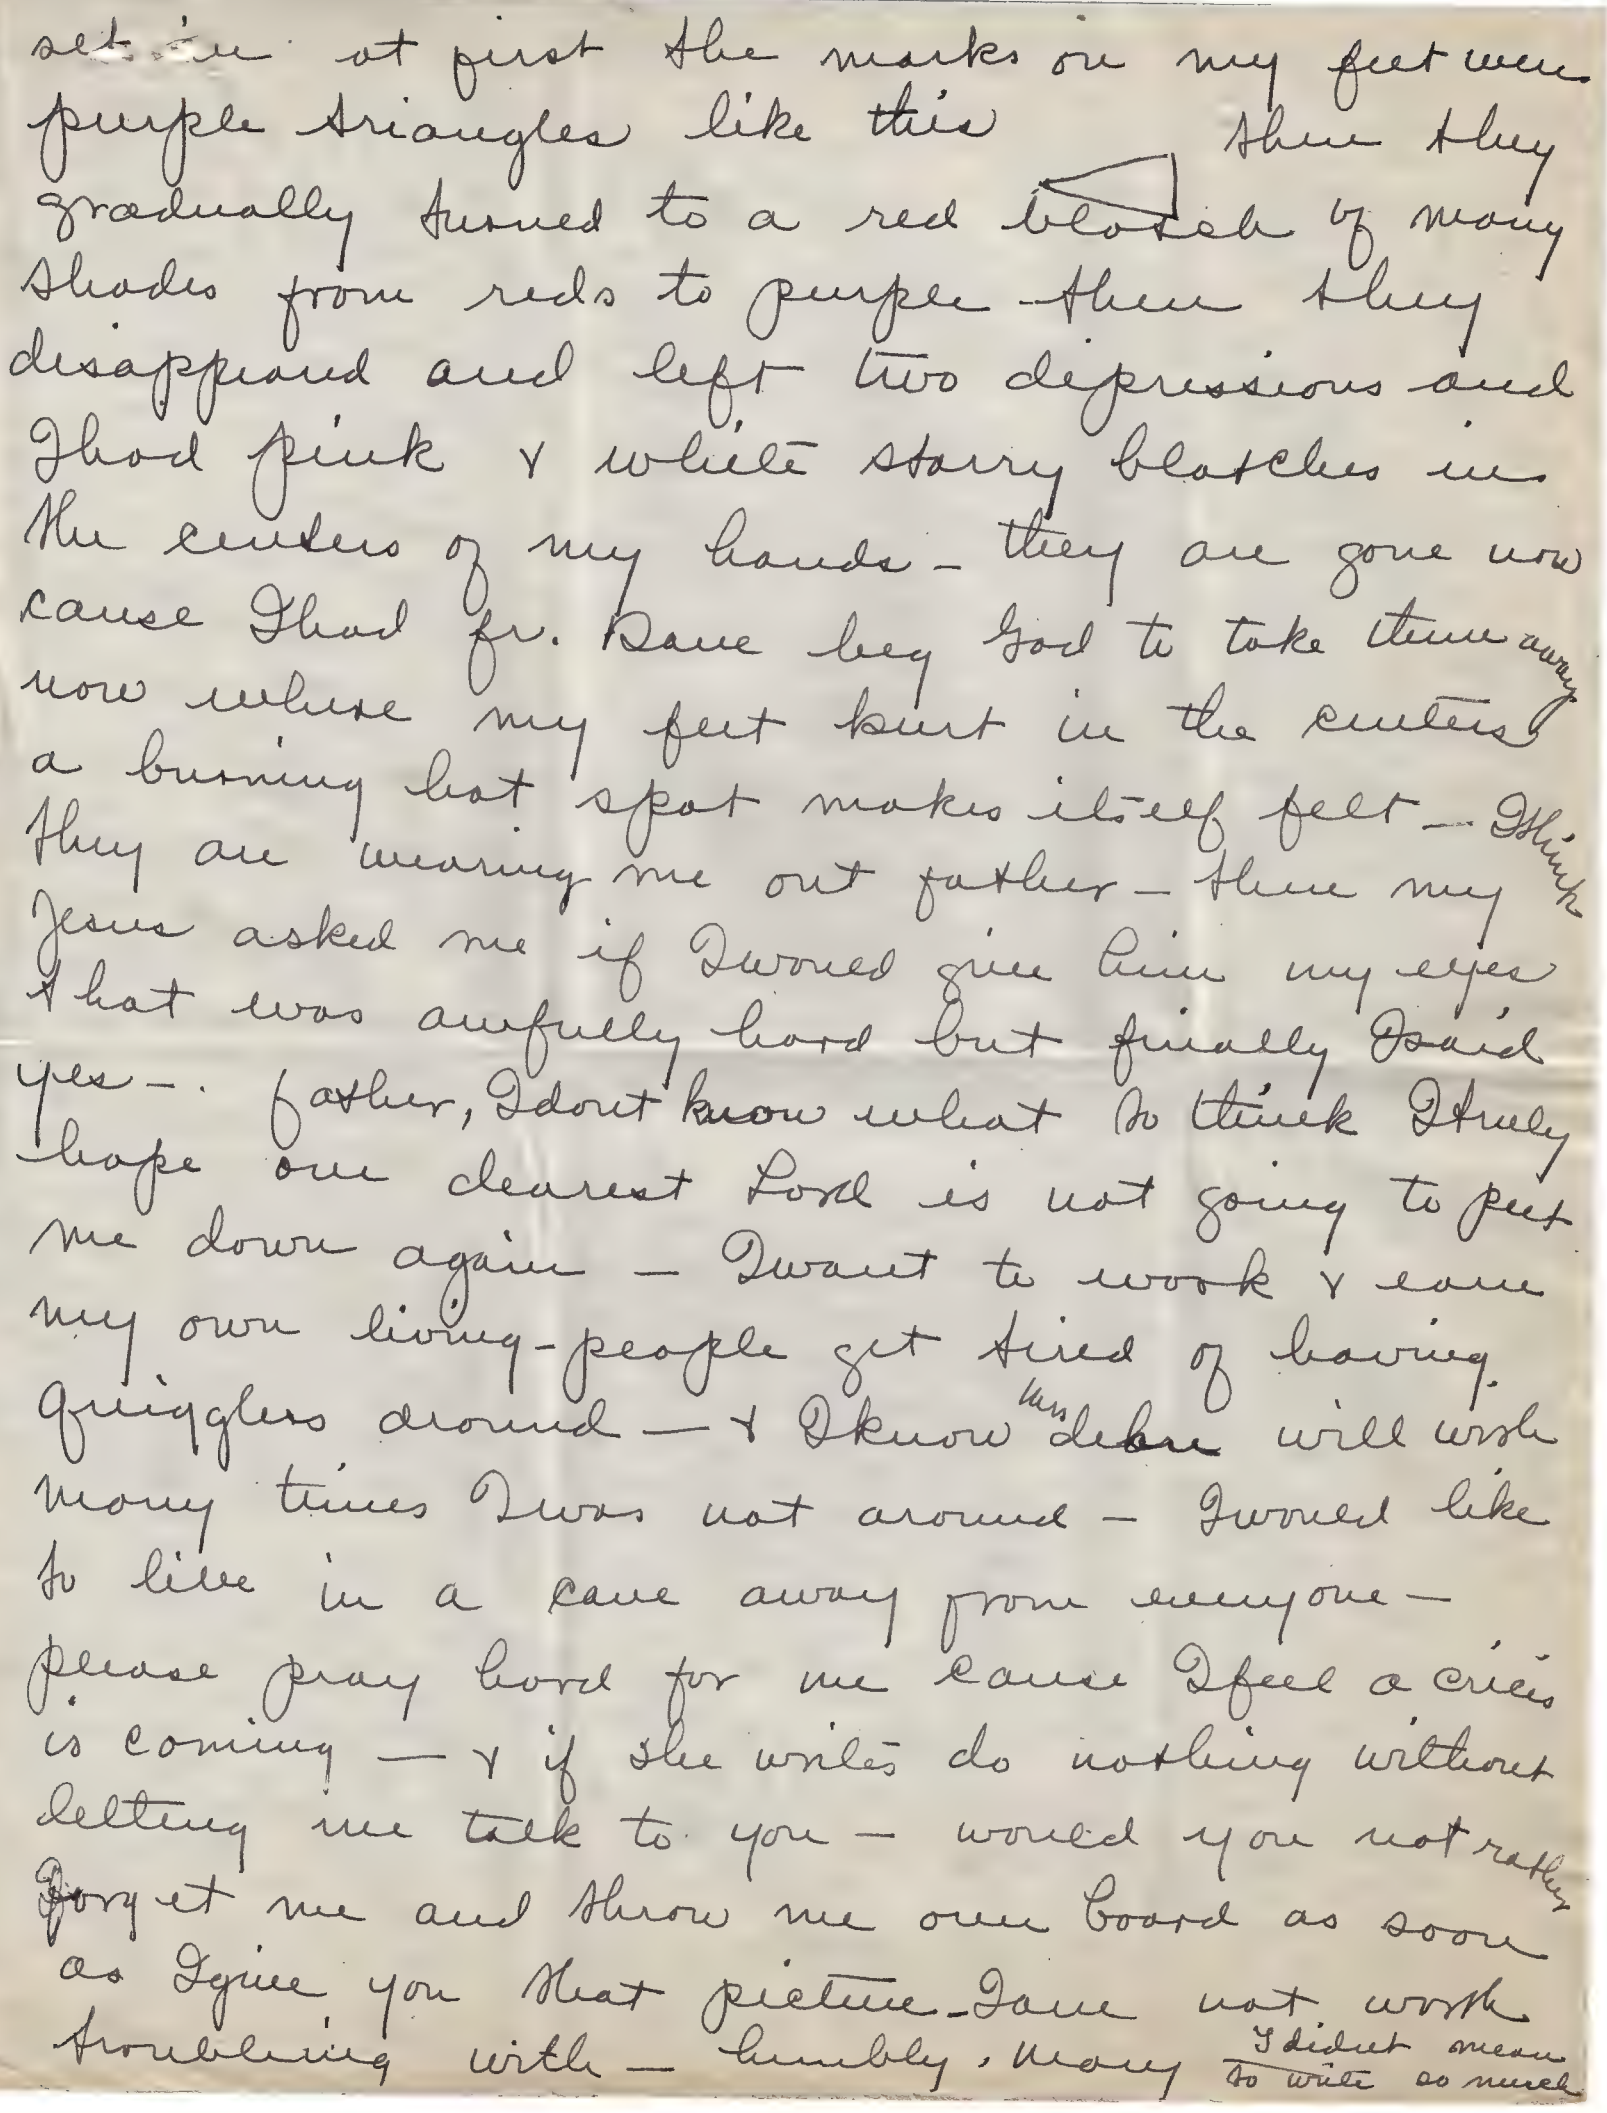 set in at first the marks on my feet were
purple triangles like this then they
gradually turned to a red blotch of many
shades from reds to purple - then they
disappeard and left two depressions and
I had pink & white starry blotches in
the centers of my hands - they are gone now
cause I had fr. Dave beg God to take them away
now where my feet hurt in the centers
a burning hot spot makes itself felt - I think
they are wearing me out father - then my
Jesus asked me if I would give him my eyes
that was awfully hard but finally I said
yes - . father, I dont know what to think I truly
hope our dearest Lord is not going to put
me down again - I want to work & earn
my own living - people get tired of having
quigglers around - & I know Mrs will wish
many times I was not around - I would like
to live in a cave away from everyone -
please pray hard for me cause I feel a crisis
is coming - & if she writes do nothing without
letting me talk to you - would you not rather
forget me and throw me over board as soon
as I give you that picture - I am not worth
troubling with - humbly, Mary I didnt mean
to write so much